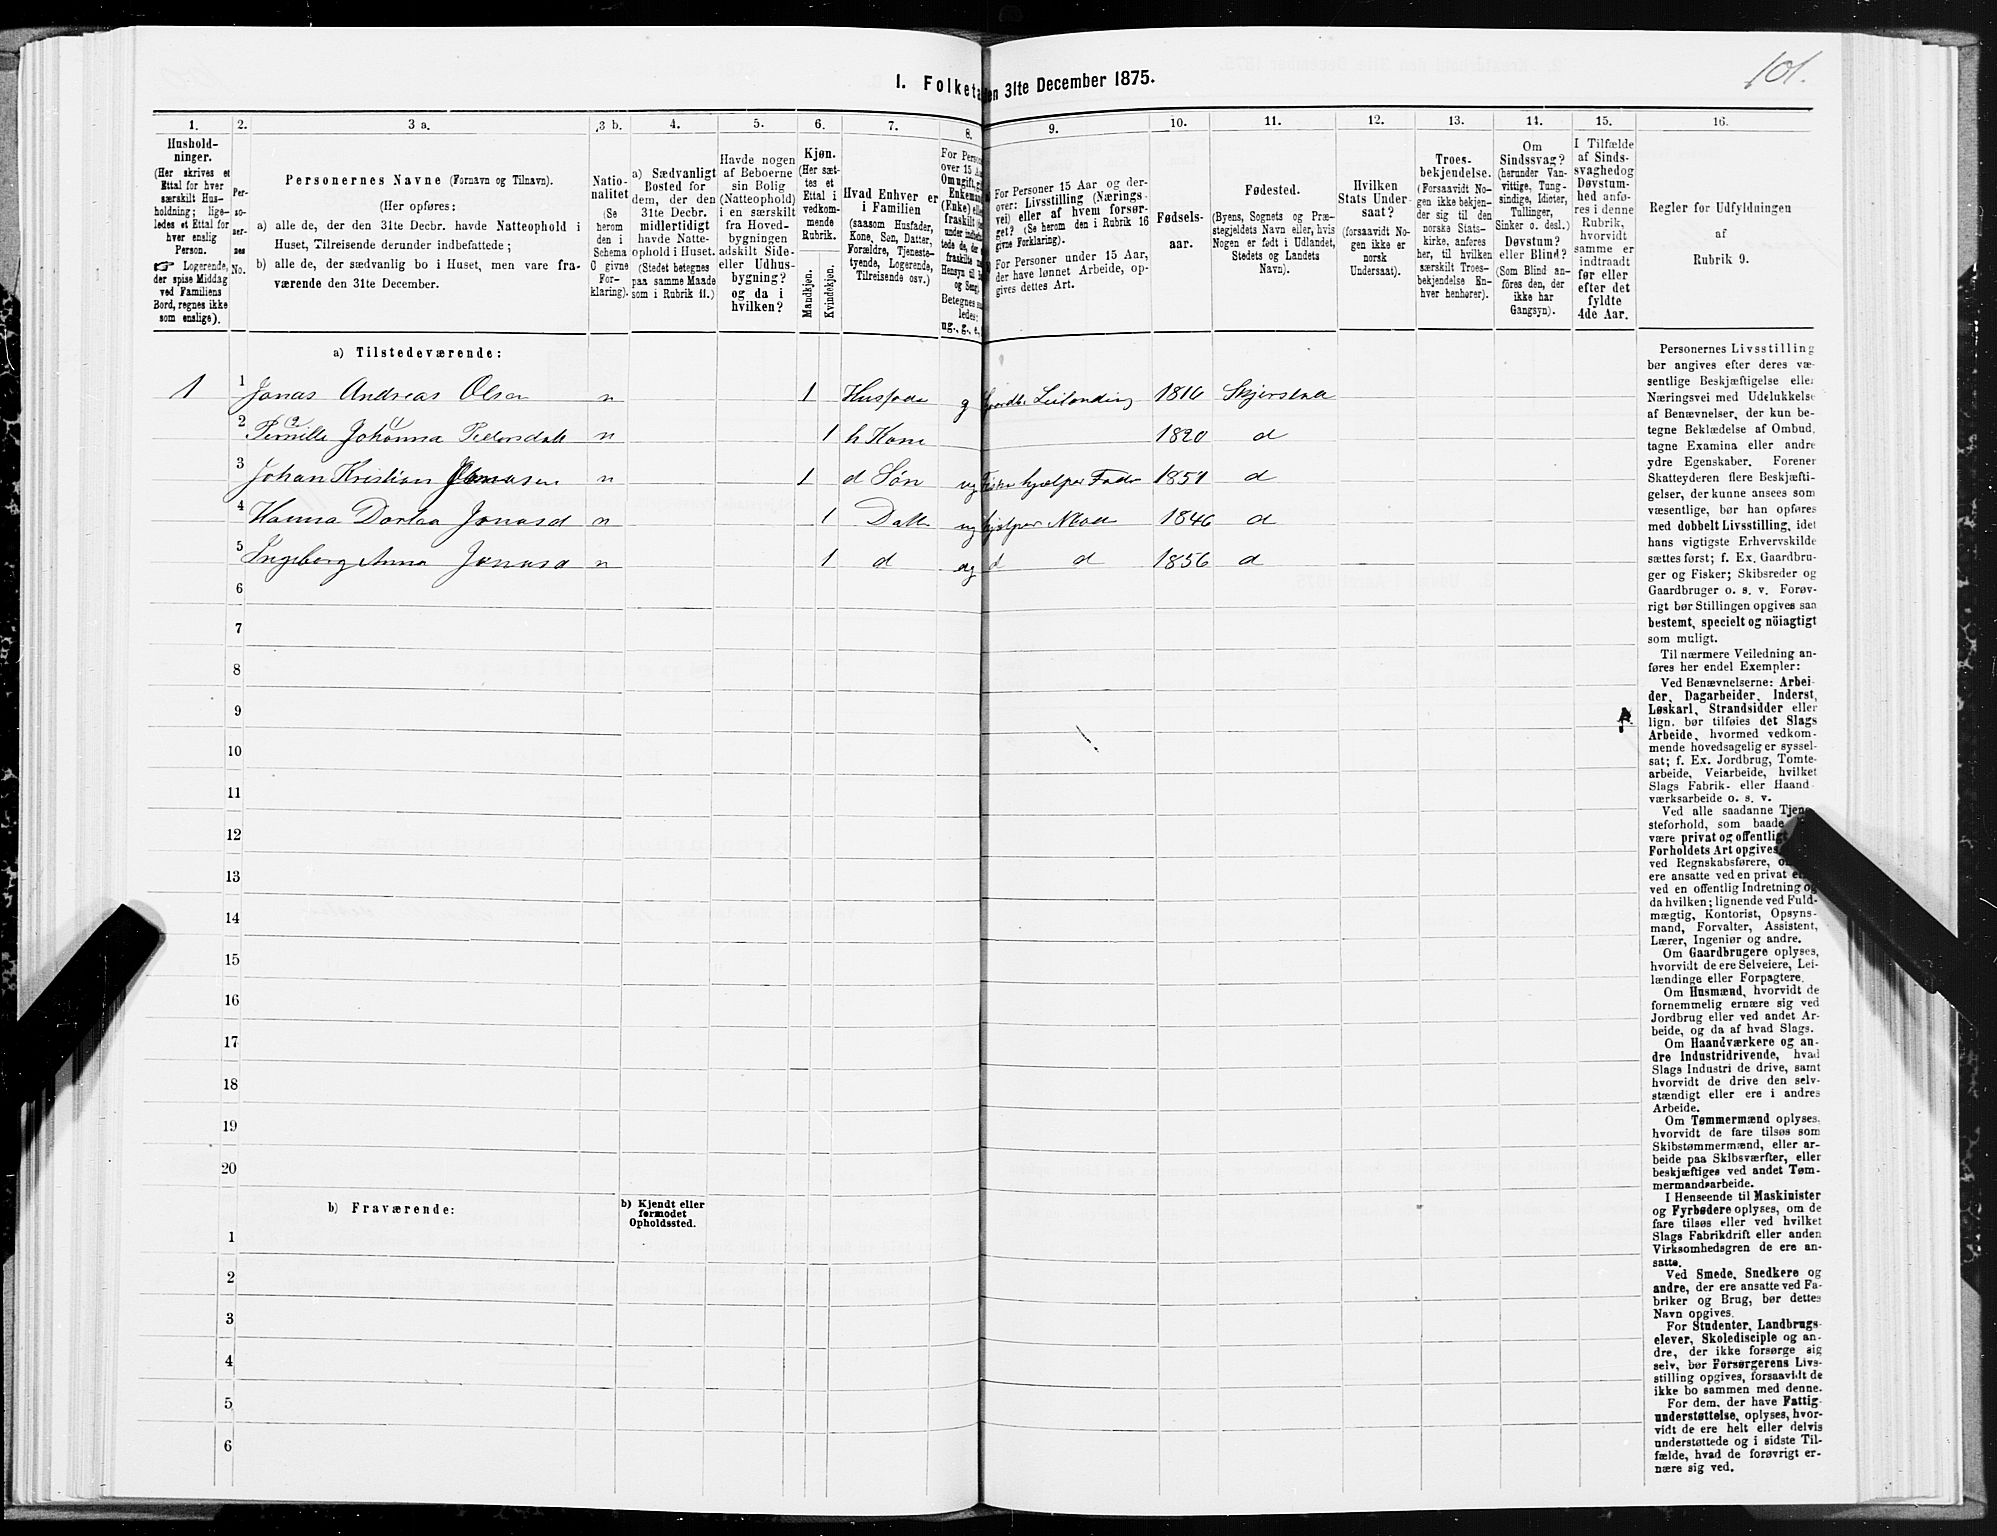 101.
I. Folketa en 31te December 1875.
1. 2. 3 a. 3 b. 4. 5. 6. 7. 8. 9. 10. 11. 12. 13. 14. 15. 16.
Hushold-
ninger.
(Her skrives et
Ettal for hver
særskilt Hus-
holdning; lige-
ledes et Ettal for
hver enslig
Person.
☞ Logerende,
der spise Middag
ved Familiens
Bord, regnes ikke
som enslige).
Per-
so-
ner-
nes
No.
Personernes Navne (Fornavn og Tilnavn).
(Her opføres:
a) alle de, der den 31te Decbr. havde Natteophold i
Huset, Tilreisende derunder indbefattede;
b) alle de, der sædvanlig bo i Huset, men vare fra-
værende den 31te December.
Natio-
nalitet
(Se
herom
den i
Schema
O givne
For-
klaring).
a) Sædvanligt
Bosted for
dem, der den
31te Decbr.
midlertidigt
havde Natte-
ophold i Huset.
(Stedet betegnes
paa samme Maade
som i Rubrik 11.)
Havde nogen
af Beboerne
sin Bolig
(Natteophold)
i en særskilt
fra Hoved-
bygningen
adskilt Side-
eller Udhus-
bygning?
og da i
hvilken?
Kjøn.
(Her sæt-
tes et
Ettal i
vedkom-
mende
Rubrik.
Mandkjøn.
Kvindekjøn.
Hvad Enhver er
i Familien
(saasom Husfader,
Kone, Søn, Datter,
Forældre, Tjeneste-
tyende, Logerende,
Tilreisende osv.)
For Perso
over 15 A
Om ugift, gi
Enkemand
(Enke) elle
fraskilt
under indbe
tede de, der
fraskilte
Hensyn til
og Seng)
Betegnes
ledes:
ug., g., e.,
For Personer 15 Aar og der-
over: Livsstilling (Nærings-
vei) eller af hvem forsør-
get? (Se herom den i Rubrik 16
givne Forklaring).
For Personer under 15 Aar,
der have lønnet Arbeide, op-
gives dettes Art.
Fødsels-
aar.
Fødested.
(Byens, Sognets og Præ-
stegjeldets Navn eller, hvis
Nogen er født i Udlandet,
Stedets og Landets
Navn).
Hvilken
Stats Under-
saat?
(forsaavidt No-
gen ikke er
norsk
Undersaat).
Troes-
bekjendelse.
(Forsaavidt No-
gen ikke bekjen-
der sig til den
norske Stats-
kirke, anføres
her, til hvilken
særskilt Troes-
bekjendelse En-
hver henhører).
Om
Sindssvag?
(herunder Van-
vittige, Tung-
sindige, Idioter,
Tullinger,
Sinker o. desl.)
Døvstum?
eller Blind?
(Som Blind an-
föres den, der
ikke har
Gangsyn).
I Tilfælde
af Sinds-
svaghed og
Døvstum-
hed anfø-
res i denne
Rubrik,
hvorvidt
samme er
indtraadt
før eller
efter det
fyldte
4de Aar.
Regler for Udfyldningen
af
Rubrik 9.
a) Tilstedeværende:
1 1 Jonas Andreas Olsen n 1 Husfader g Leilending 1816 Skjerstad
2 Pernille Johanna Pedersdatt n 1 h Kone 1820 d
3 Johan Kristian Jonasen n 1 d Søn ug hjelper Fader 1851 d
4 Hanna Dortea Jonasd n 1 Datt ug hjelper Mod 1846 d
5 Ingeborg Anna Jonasd n 1 d ug d d 1856 d
6
7
8
9
10
11
12
13
14
15
16
17
18
19
20
b) Fraværende:
b) Kjendt eller
formodet
Opholdssted.
1
2
3
4
5
6
Personernes Livsstilling
bør angives efter deres væ-
sentlige Beskjæftigelse eller
Næringsvei med Udelukkelse
af Benævnelser, der kun be-
tegne Beklædelse af Ombud,
tagne Examina eller andre
ydre Egenskaber. Forener
Skatteyderen flere Beskjæfti-
gelser, der kunne ansees som
væsentlige, bør han opføres
med dobbelt Livsstilling, idet
hans vigtigste Erhvervskilde
sættes først; f. Ex. Gaardbru-
ger og Fisker; Skibsreder og
Gaardbruger o. s. v. Forøv-
rigt bør Stillingen opgives saa
bestemt, specielt og nöiagtigt
som muligt.
Til nærmere Veiledning an-
føres her endel Exempler:
Ved Benævnelserne: Arbei-
der, Dagarbeider, Inderst,
Løskarl, Strandsidder eller
lign. bør tilføies det Slags
Arbeide, hvormed vedkom-
mende hovedsagelig er syssel-
sat; f. Ex. Jordbrug, Tomte-
arbeide, Veiarbeide, hvilket
Slags Fabrik- eller Haand-
værksarbeide o. s. v.
Ved alle saadanne Tjene-
steforhold, som baade
være privat og offentligt
Forholdets Art opgives
ved Regnskabsførere, o
ere ansatte ved en privat el
ved en offentlig Indretning og
da hvilken; lignende ved Fuld-
mægtig, Kontorist, Opsyns-
mand, Forvalter, Assistent,
Lærer, Ingeniør og andre.
Om Gaardbrugere oplyses,
hvorvidt de ere Selveiere, Lei-
lændinge eller Forpagtere.
Om Husmænd, hvorvidt de
fornemmelig ernære sig ved
Jordbrug eller ved andet Ar-
beide, og da af hvad Slags.
Om Haandværkere og an-
dre Industridrivende, hvad
Slags Industri de drive, samt
hvorvidt de drive den selv-
stændigt eller ere i andres
Arbeide.
Om Tømmermænd oplyses,
hvorvidt de fare tilsøs som
Skibstømmermænd, eller ar-
beide paa Skibsværfter, eller
beskjæftiges ved andet Tøm-
mermandsarbeide.
I Henseende til Maskinister
og Fyrbødere oplyses, om de
fare tilsøs eller ved hvilket
Slags Fabrikdrift eller anden
Virksomhedsgren de ere an-
satte.
Ved Smede, Snedkere og
andre, der ere ansatte ved Fa-
briker og Brug, bør dettes
Navn opgives.
For Studenter, Landbrugs-
elever, Skoledisciple og an-
dre, der ikke forsørge sig
selv, bør Forsørgerens Livs-
stilling opgives, forsaavidt de
ikke bo sammen med denne.
For dem, der have Fattig-
understøttelse, oplyses, hvor-
vidt de ere helt eller delvis
understøttede og i sidste Til-
fælde, hvad de forøvrigt er-
nære sig ved.